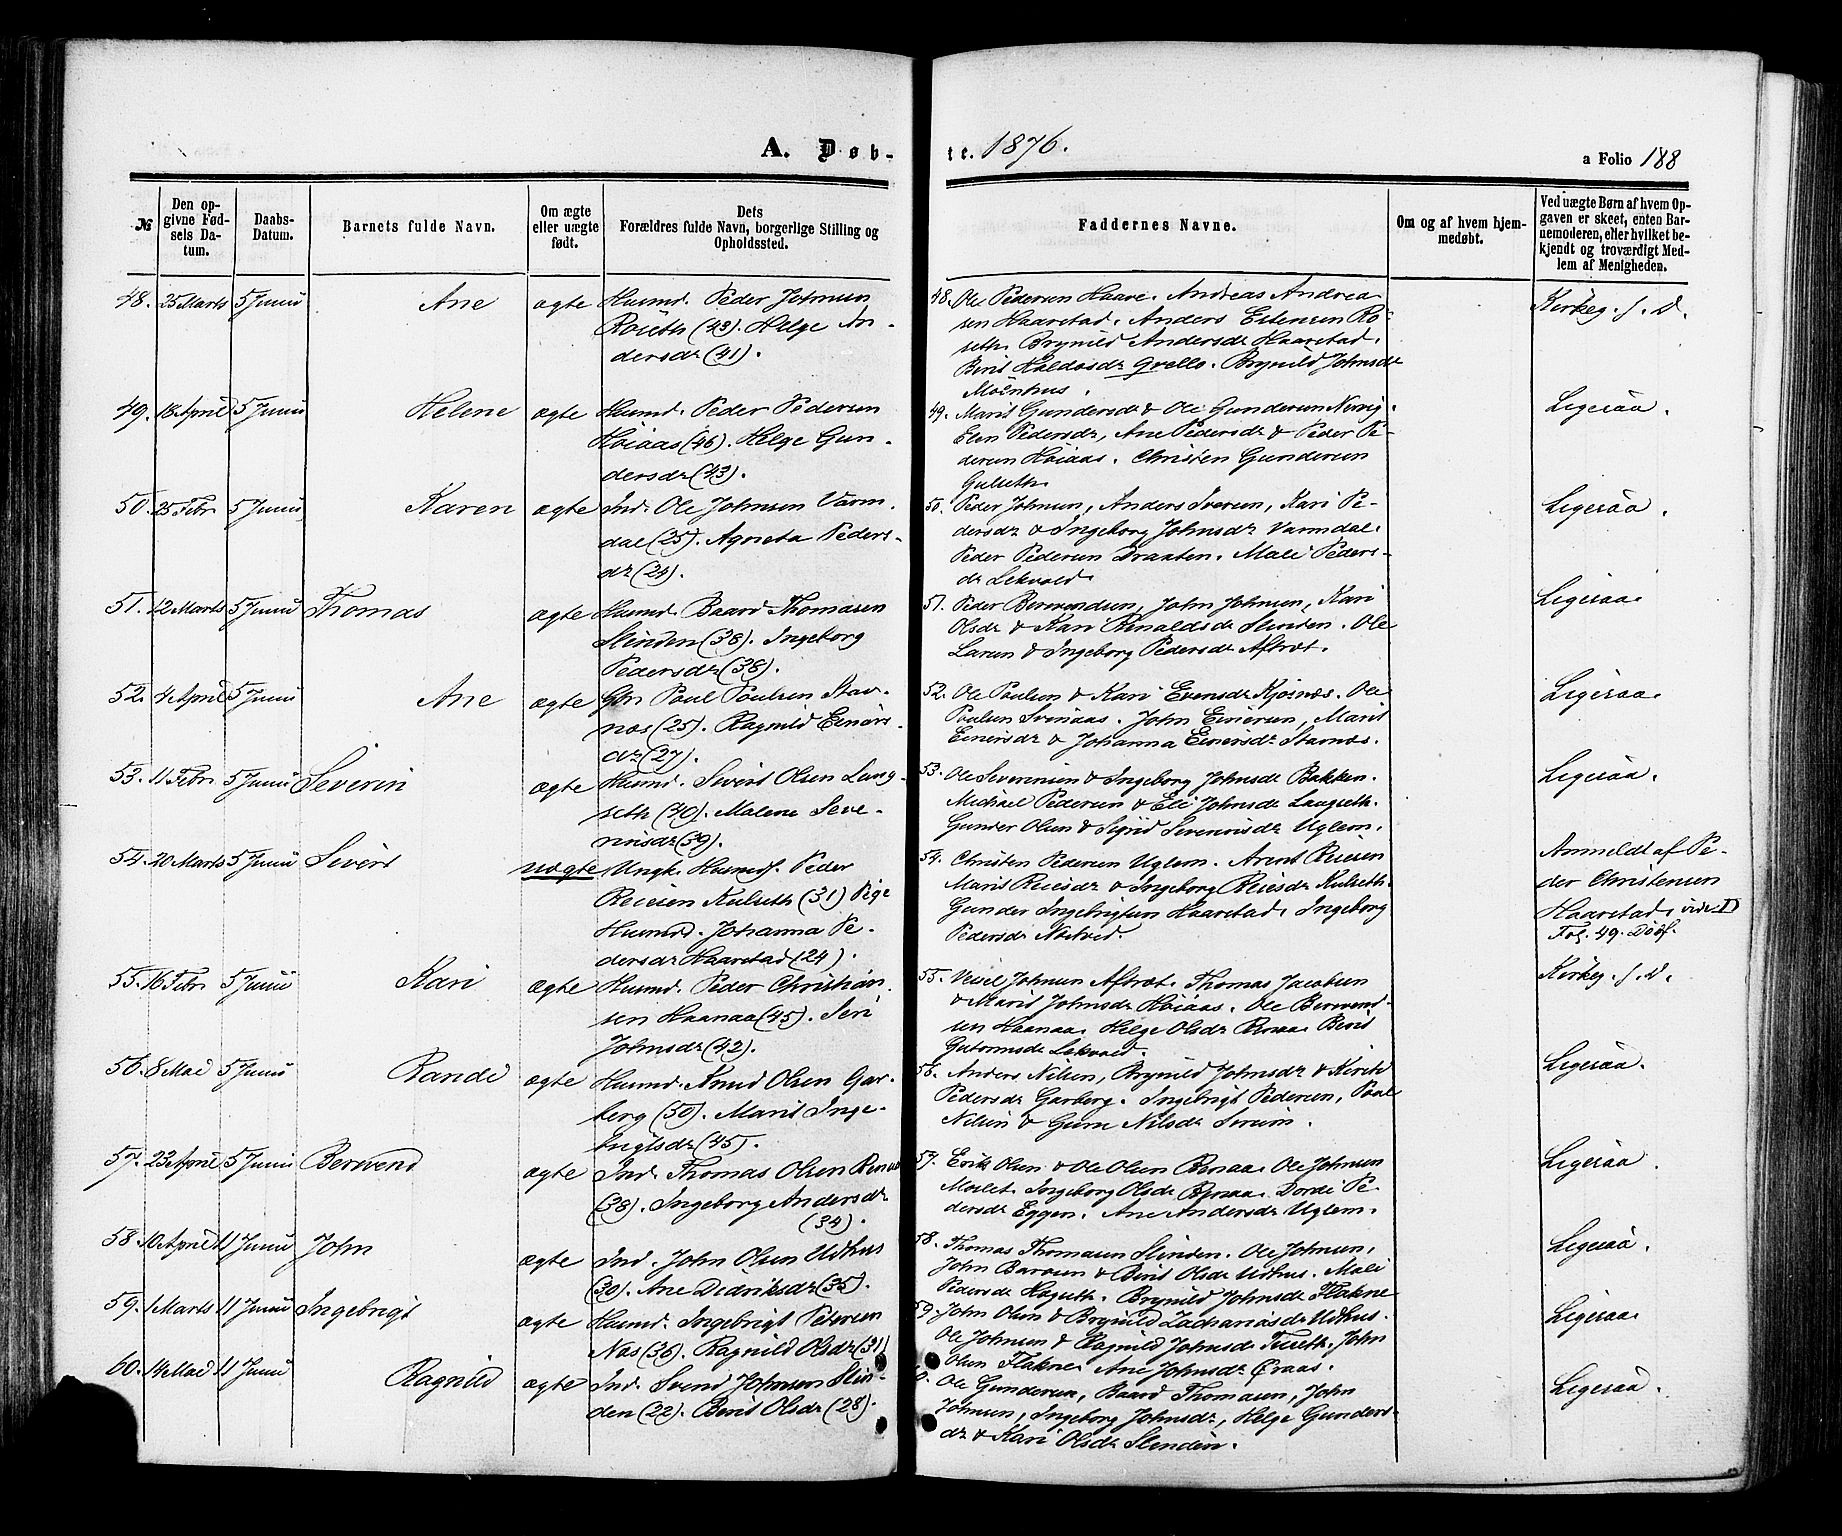 A. Døb-
te. 1876.
a Folio 188
№
Den op-
givne Fød-
sels Da-
tum.
Daabs-
Datum.
Barnets fulde Navn.
Om ægte
eller uægte
født.
Dets
Forældres fulde Navn, borgerlige Stilling og
Opholdssted.
Faddernes Navne.
Om og af hvem hjem-
medøbt.
Ved uægte Børn af hvem Op-
gaven er skeet, enten Bar-
nemoderen, eller hvilket be-
kjendt og troværdigt Med-
lem af Menigheden.
48. 25 Marts 5 Junii Ane ægte Husmd. Peder Johnsen
Röseth (43). Helge An-
dersdr (41).
48. Ole Pedersen Haave. Andreas Andrea-
sen Haarstad. Anders Estensen Rö-
seth. Brynild Andersdr Haarstad.
Berit Haldosdr Qvello. Brynild Johnsdr
Möenhus.
Kirkeg. s. D.
49. 18 April 5 Junii Helene ægte Husmd. Peder Pedersen
Höiaas (46). Helge Gun-
dersdr (43).
49. Marit Gundersdr & Ole Gundersen Nervig.
Elen Pedersdr, Ane Pedersdr & Peder Pe-
dersen Höiaas. Christen Gundersen
Gulseth.
Ligesaa.
50. 25 Febr 5 Junii Karen ægte Ind. Ole Johnsen Varm-
dal (25). Agneta Peders-
dr (24).
50. Peder Johnsen, Anders Iversen, Kari Pe-
dersdr & Ingeborg Johnsdr Varmdal.
Peder Pedersen Draxten. Mali Peders-
dr Lekvold.
Ligesaa.
51. 12 Marts 5 Junii Thomas ægte Husmd. Baard Thomasen
Slinden (38). Ingeborg
Pedersdr (38).
51. Peder Bernendsen, John Johnsen, Kari
Olsdr & Kari Renaldsdr Slinden. Ole
Larsen & Ingeborg Pedersdr Aftret.
Ligesaa.
52. 4 April 5 Junii Ane ægte Gbr. Paul Paulsen Stav-
næs (25). Ragnild Einers-
dr (27).
52. Ole Paulsen & Kari Evensdr Kjösnæs. Ole
Paulsen Svenaas. John Einersen, Marit
Einersdr & Johanna Einersdr Stavnæs.
Ligesaa.
53. 11 Febr 5 Junii Severin ægte Husmd. Sivert Olsen Lang-
seth (40). Malene Seve-
rinsdr (39).
53. Ole Severinsen & Ingeborg Johnsdr Bakken.
Michael Pedersen & Eli Johnsdr Langseth.
Gunder Olsen & Sigrid Severinsdr Uglem.
Ligesaa.
54. 20 Marts 5 Junii Sivert uægte Ungk. Husmd. Peder
Reiersen Kulseth (31) Pige
Husmd. Johanna Pe-
dersdr Haarstad (24).
54. Christen Pedersen Uglem. Arent Reiersen
Marit Reiersdr & Ingeborg Reiersdr Kulseth.
Gunder Ingebrigtsen Haarstad, Ingeborg
Pedersdr
Anmeldt af Pe-
der Christensen
Haarstad, vide D
Fol. 49. Döbf.
55. 16 Febr 5 Junii Kari ægte Husmd. Peder Christian-
sen Haanaa (45). Siri
Johnsdr (42.
55. Johnsen Aftret. Thomas Jacobsen
& Marit Johnsdr Höiaas. Ole Bernend-
sen Haanaa. Helge Olsdr Renaa. Berit
Gutormsdr Lekvold.
Kirkeg. s. D.
56. 8 Mai 5 Junii Randi ægte Husmd. Knud Olsen Gar-
berg (50). Marit Inge-
brigtsdr (45).
56. Anders Nilsen, Brynild Johnsdr & Kirsti
Pedersdr Garberg. Ingebrigt Pedersen, Paal
Nilsen & Guru Nilsdr
Ligesaa.
57. 23 April 5 Junii Bernend ægte Ind. Thomas Olsen Renaa
(38). Ingeborg Andersdr
(34).
57. Erik Olsen & Ole Olsen Renaa. Ole Johnsen
Moslet. Ingeborg Olsdr Renaa. Dordi Pe-
dersdr Eggen. Ane Andersdr Uglem.
Ligesaa.
58. 10 April 11 Junii John ægte Ind. John Olsen Udhus
(30). Ane Didriksdr (35).
58. Thomas Thomasen Slinden. Ole Johnsen,
John Barosen & Berit Olsdr Udhus. Mali
Pedersdr Hogseth. Brynild Johnsdr Flakne
Ligesaa.
59. 1 Marts 11 Junii Ingebrigt ægte Husmd. Ingebrigt Petersen
Næs (36). Ragnild Olsdr (31)
59. John Olsen & Brynild Zachariasdr Udhus.
Ole Johnsen & Ragnild Johnsdr Tuseth, John
Olsen Flakne. Ane Johnsdr Öraas.
Ligesaa.
60. 14 Mai 11 Junii Ragnild ægte Ind. Svend Johnsen Slin-
den (22). Berit Olsdr (28).
Ole Gundersen, Baard Thomasen, John
Johnsen, Ingeborg Johnsdr, Helge Gunders-
dr & Kari Olsdr Slinden.
Ligesaa.